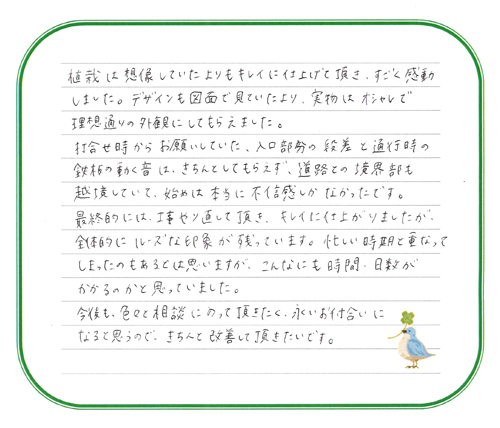 植栽は想像していたよりもキレイに仕上げて頂き、すごく感動
しました。デザインも図面で見ていたより、実物はオシャレで
理想通りの外観にしてもらえました。
打合せ時からお願いしていた、入口部分の段差と通行時の
鉄板の動く音は、きちんとしてもらえず、道路との境界部も
越境していて、始めは本当に不信感しかなかったです。
最終的には、工事やり直して頂き、キレイに仕上がりましたが、
全体的にルーズな印象が残っています。忙しい時期と重なって
しまったのもあるとは思いますが、こんなにも時間・日数が
かかるのかと思っていました。
今後も、色々と相談にのって頂きたく、永いお付合いに
なると思うので、きちんと改善して頂きたいです。